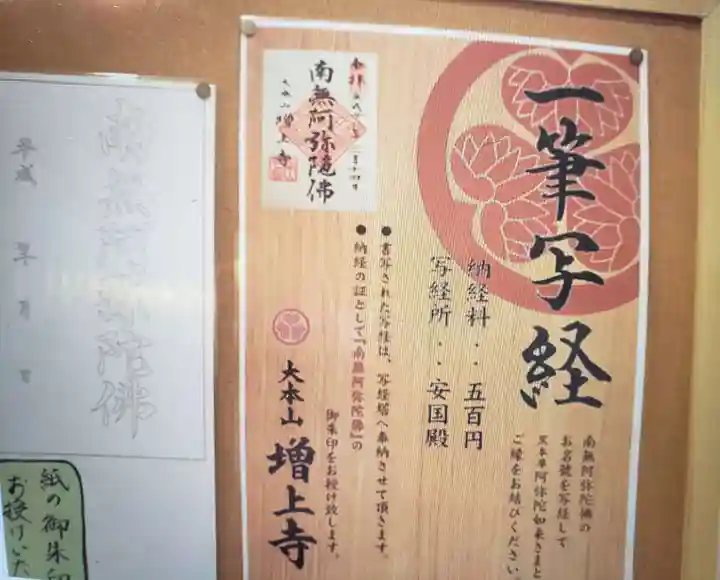 一筆写経
南無阿弥陀佛の
お名號を写経して
黒本尊阿弥陀如来さまと
ご縁をお結びください
納経料・・五百円
写経所・・安国殿
●書写された写経は、写経塔へ奉納させて頂きます。
●納経の証として『南無阿弥陀佛』の
御朱印をお授け致します。
大本山 増上寺
奉拝
南無阿弥陀佛
大本山 増上寺
南無阿弥陀佛
平成 年 月 日
紙の御朱印
お授けいた